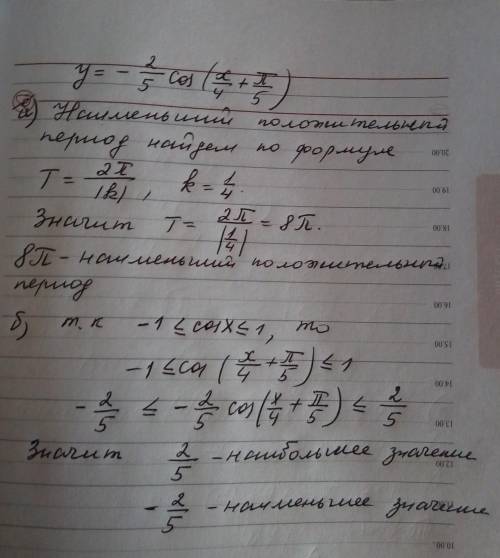 y = - 2/5 cos(x/4 + π/5)
а) Наименьший положительный
период найдем по формуле
T = 2π/|k|, k = 1/4.
Значит T = 2π/|1/4| = 8π.
8π - наименьший положительный
период
б) т.к -1 ≤ cosx ≤ 1, то
-1 ≤ cos(x/4 + π/5) ≤ 1
- 2/5 ≤ - 2/5 cos(x/4 + π/5) ≤ 2/5
Значит 2/5 - наибольшее значение
- 2/5 - наименьшее значение
20.00
19.00
18.00
17.00
16.00
15.00
14.00
13.00
12.00
10.00